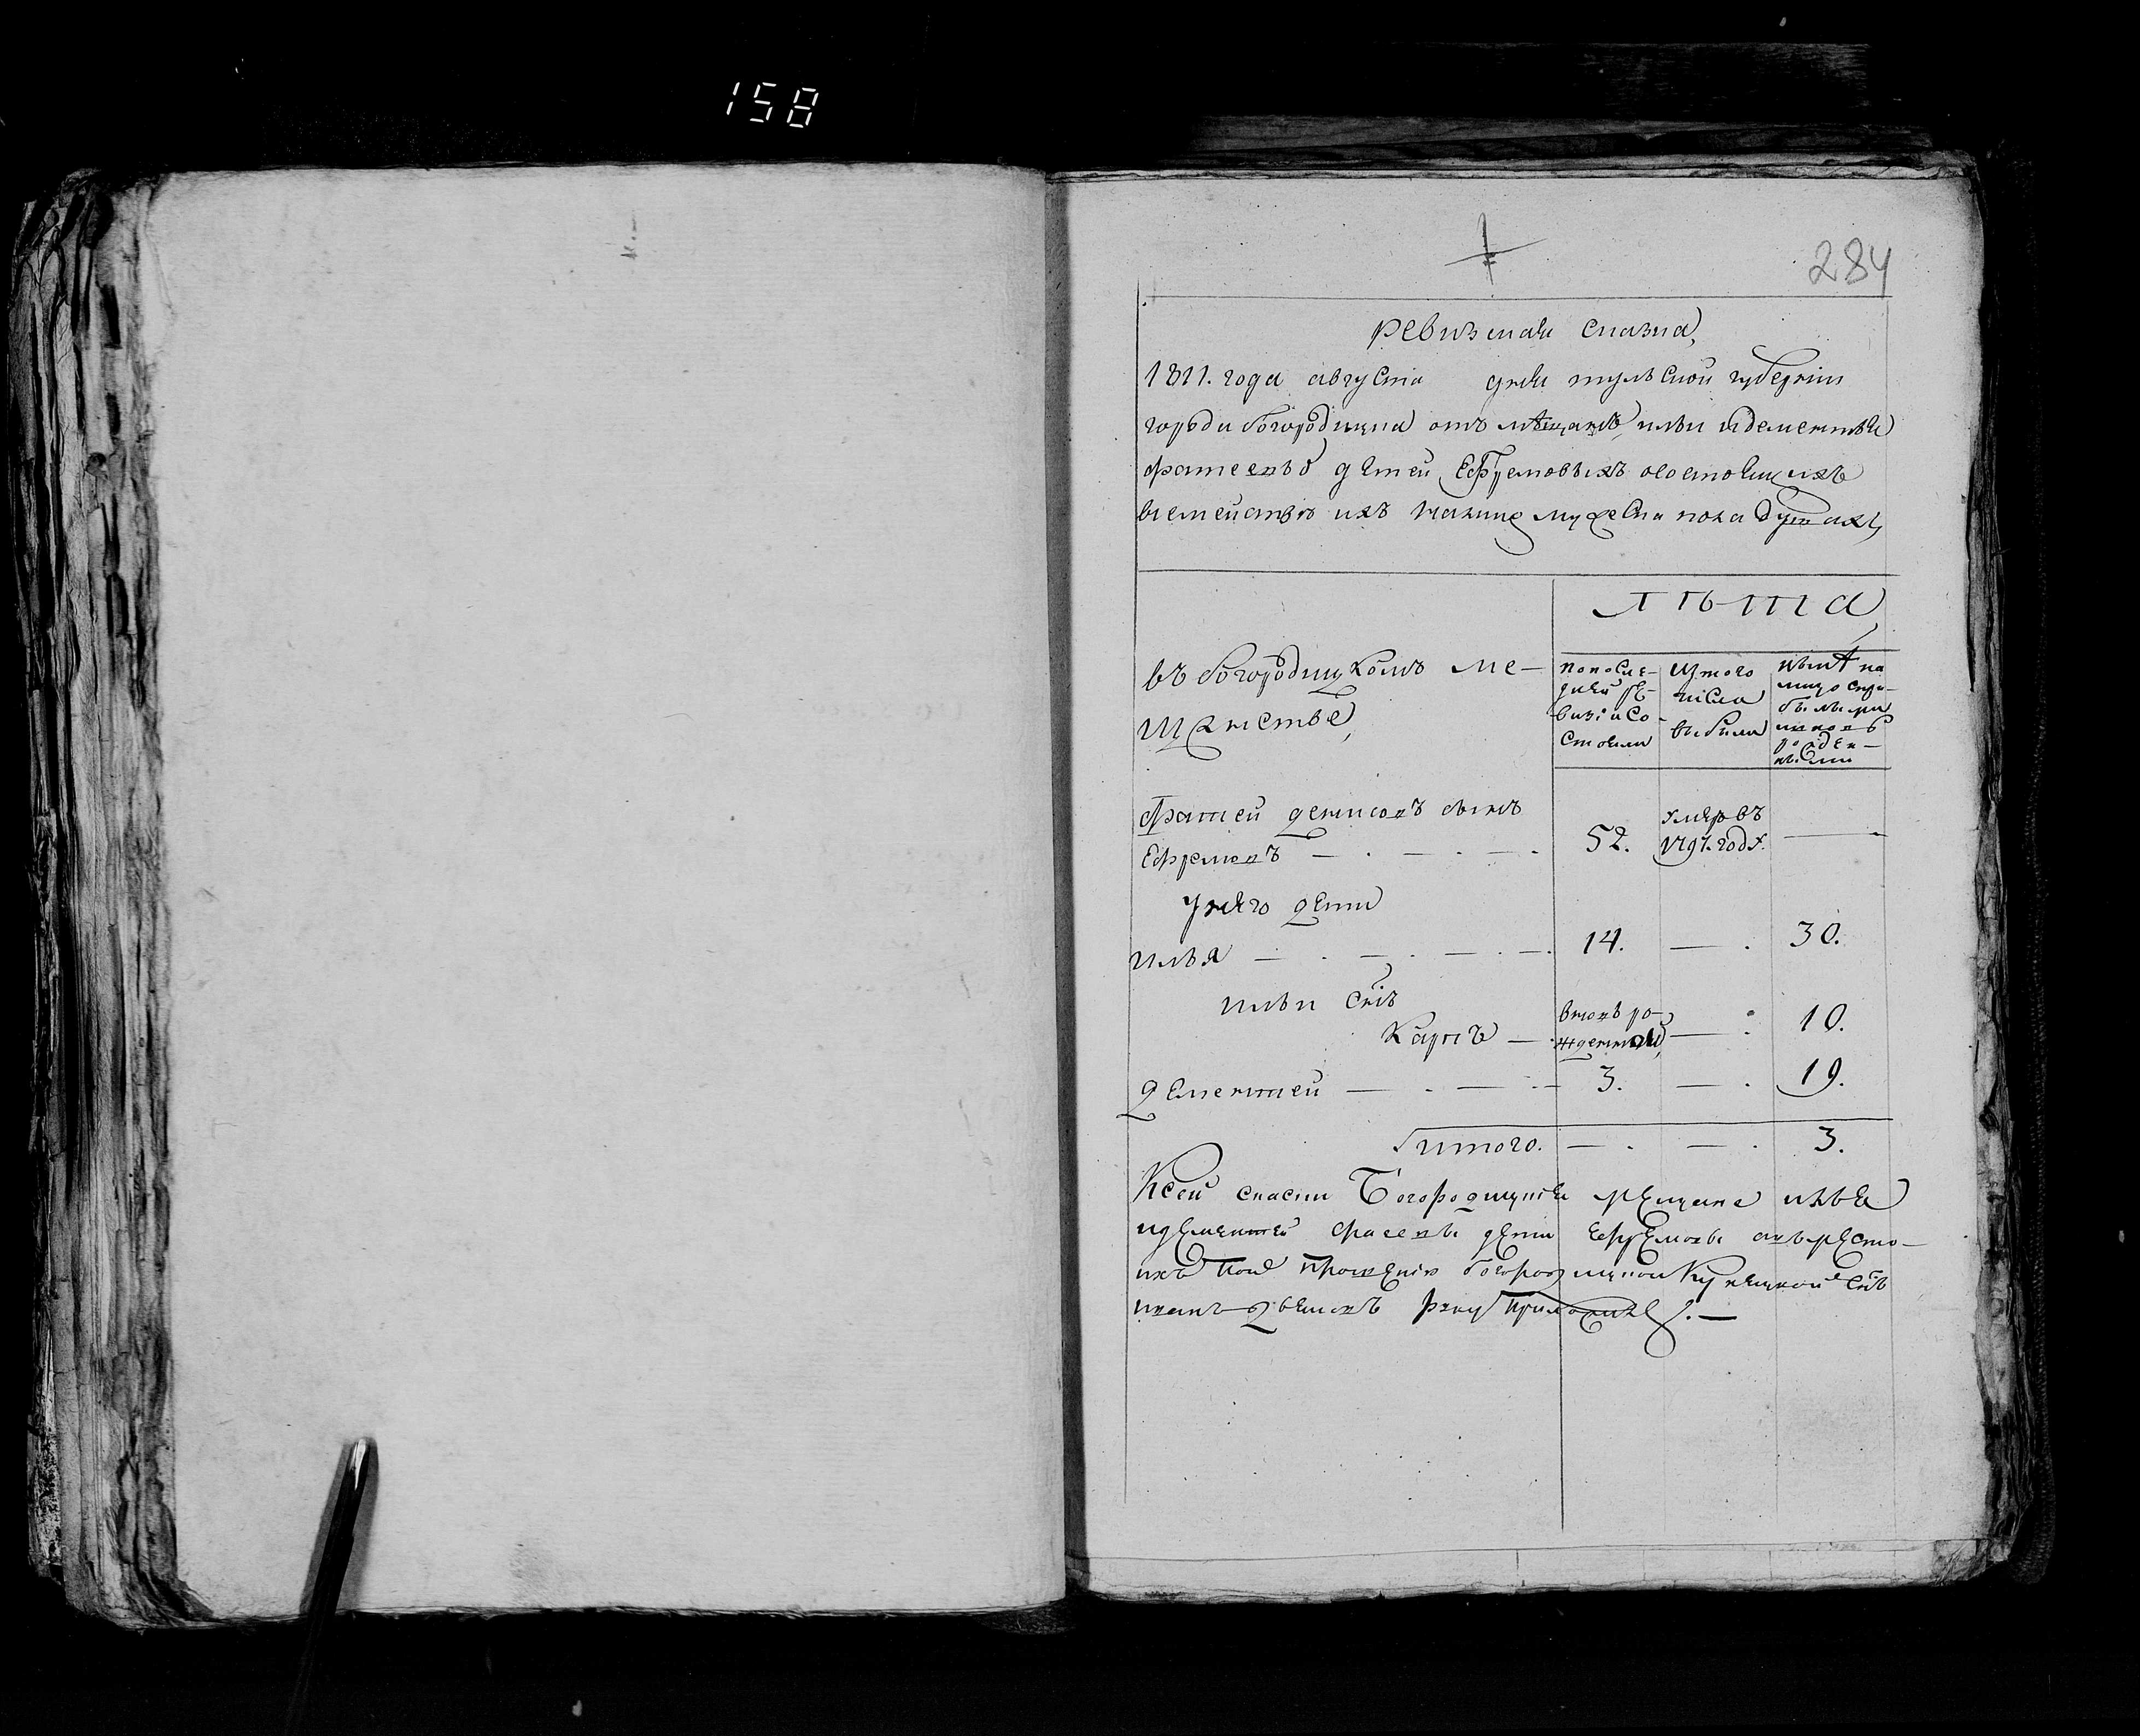 158
284
ревизская сказка,
1811. года августа дня тульской губернiи
города богородицка отъ мѣщанъ ильи и дементья
фатеевыхъ детей Ефремовыхъ о состоящихъ
въ семействе ихъ мужеска пола душахъ,
въ богородицкомъ ме-
щанстве,
лѣта
по после-
дней ре-
визiи со-
стояли
из того
числа
выбыли
ныне на
лицо
Фатей денисовъ сынъ
Ефремовъ — . — . — . 52. умеръ въ 1797. годе. —
у него дети
илья — . — . — . — . 14. — . 30.
ильи снъ
Карпъ — вновь ро-
жденный — . 10.
дементей — . — . — 3. — . 19.
итого. — . — . 3.
К сей скаски Богородицкiя мещане илья
и дементей фатеевы дети ефремовы а вместо
ихъ по прошенiю богородицкой купецкой снъ
иванъ руку приложилъ. —